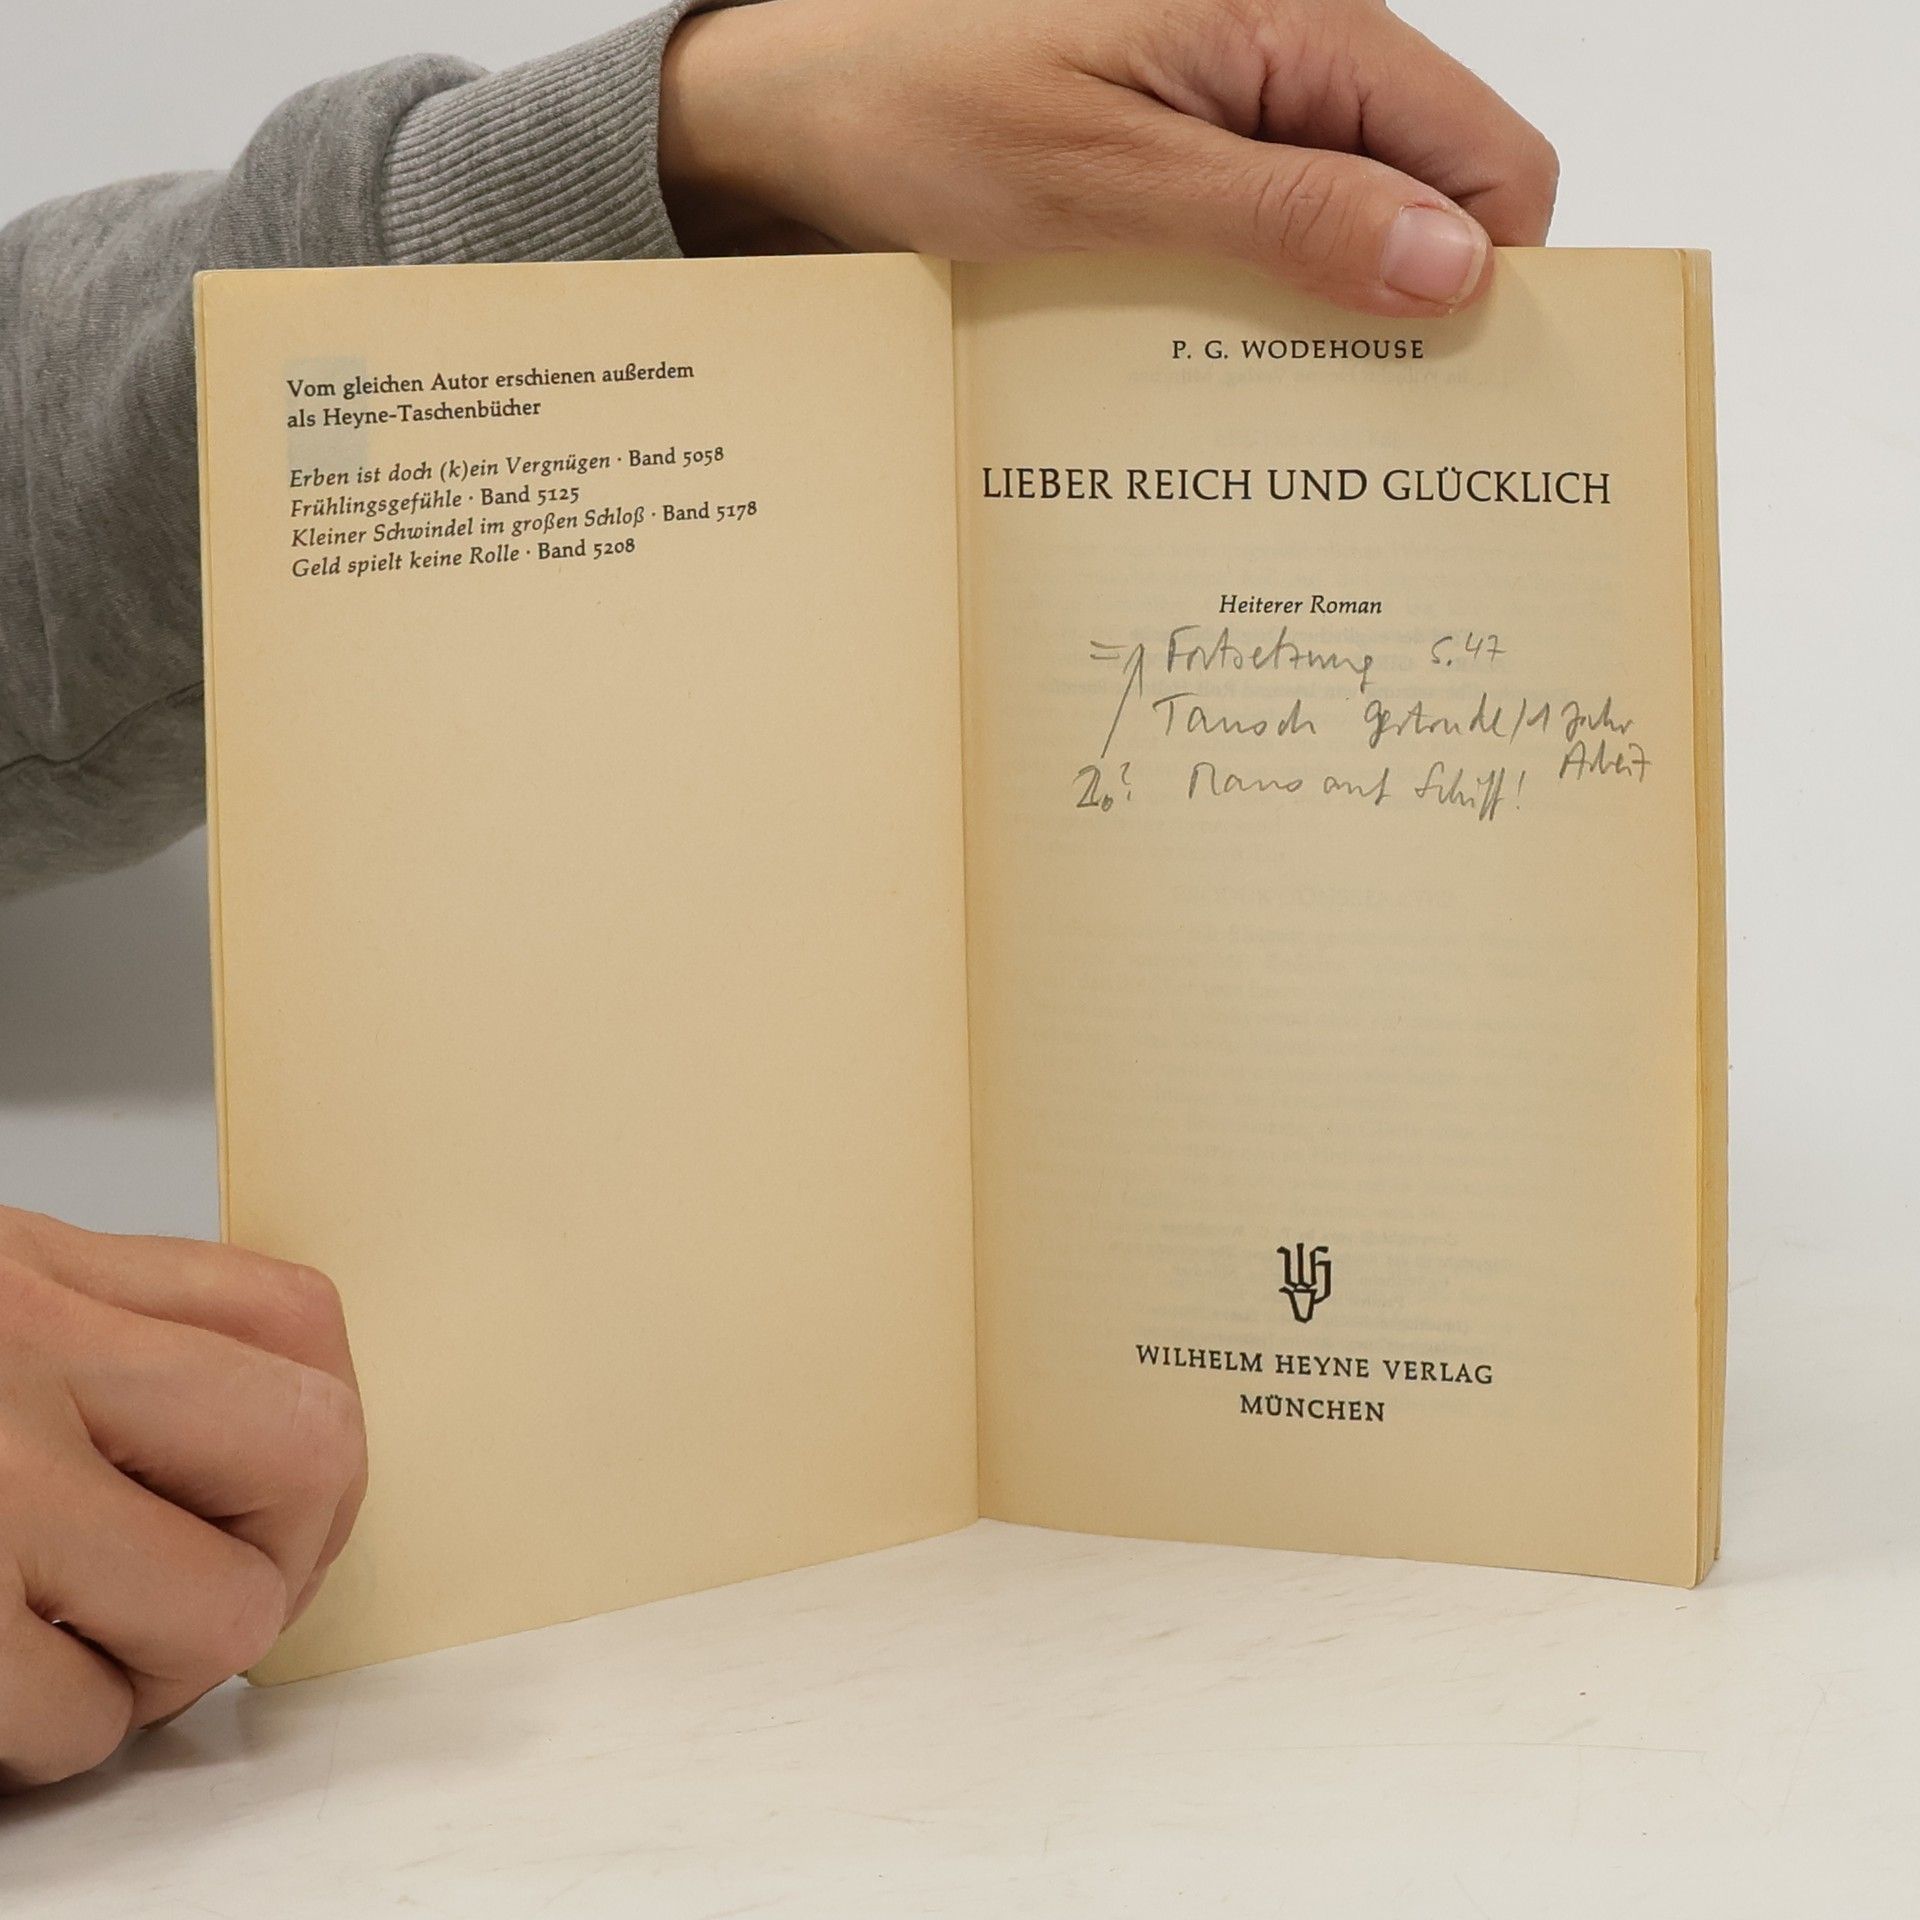 Vom gleichen Autor erschienen außerdem
als Heyne-Taschenbücher
Erben ist doch (k)ein Vergnügen · Band 5058
Frühlingsgefühle · Band 5125
Kleiner Schwindel im großen Schloß · Band 5178
Geld spielt keine Rolle · Band 5208
P. G. WODEHOUSE
LIEBER REICH UND GLÜCKLICH
Heiterer Roman
= Fortsetzung S. 47
Tausch Gertrude/1 Jahr
Arbeit
auf Schiff!
WILHELM HEYNE VERLAG
MÜNCHEN